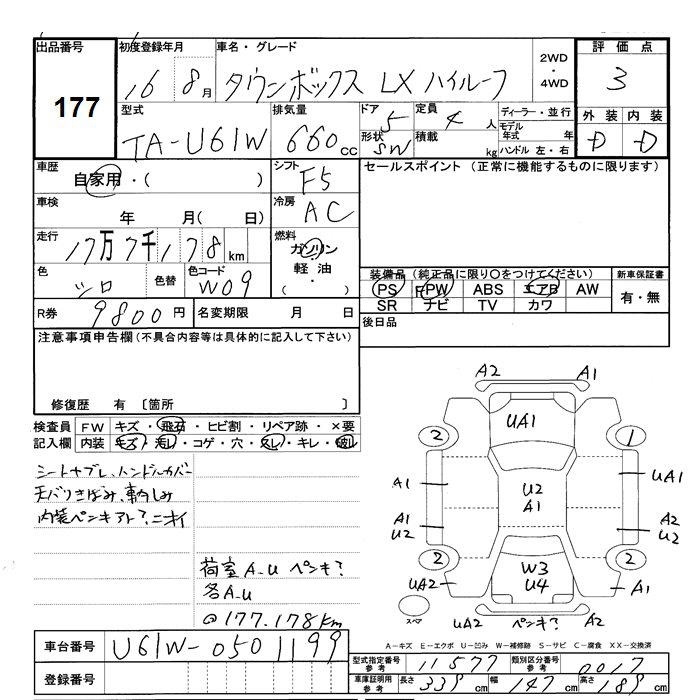 出品番号 初度登録年月 車名・グレード 2WD・4WD 評価点
177 16 8月 タウンボックス LX ハイルーフ 3
型式 排気量 ドア 5 定員 4人 ディーラー・並行 外装 内装
TA-U61W 660cc 形状 SW 積載 kg モデル年式 年 ハンドル 左・右 D D
車歴 自家用・( ) シフト F5 セールスポイント (正常に機能するものに限ります)
車検 年 月( 日) 冷房 AC
走行 17万7千178km 燃料 ガソリン 軽油・
色 シロ 色替 色コード W09 ( )
装備品 (純正品に限り○をつけてください) 新車保証書
PS PW ABS エアB AW 有・無
SR ナビ TV カワ
R券 9800円 名変期限 月 日 後日品
注意事項申告欄 (不具合内容等は具体的に記入して下さい)
修復歴 有 〔箇所 〕
検査員 FW キズ・飛石・ヒビ割・リペア跡・×要
記入欄 内装 キズ・汚レ・コゲ・穴・スレ・キレ・破レ
シートヤブレ、ハンドルカバー
天バリきばみ、
内装ペンキアト?、ニオイ
荷室A-U ペンキ?
各A-U
@177.178km
A2 A1
UA1
2 1
A1 U2 A1 UA1
A1 U2 A2 U2
2 W3 U4 2
UA2 A1
スペア UA2 ペンキ? A2
A-キズ E-エクボ U-凹み W-補修跡 S-サビ C-腐食 XX-交換済
車台番号 U61W-0501199
登録番号
型式指定番号 参考 11577 類別区分番号 参考 0017
車庫証明用 参考 長さ 339cm 幅 147cm 高さ 189cm